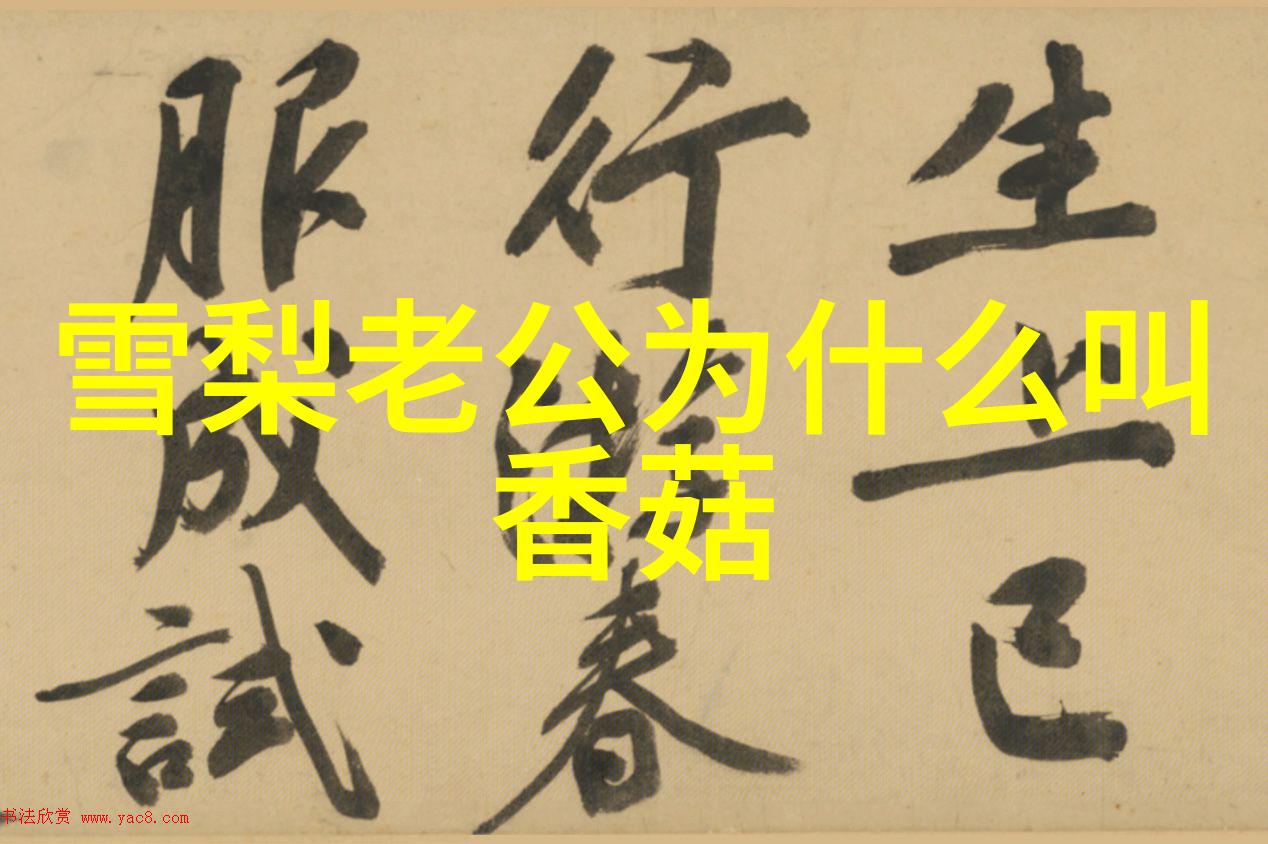 雪梨老公为什么叫
香菇
生上已
行春
服成試
书法欣赏 www.yac8.com